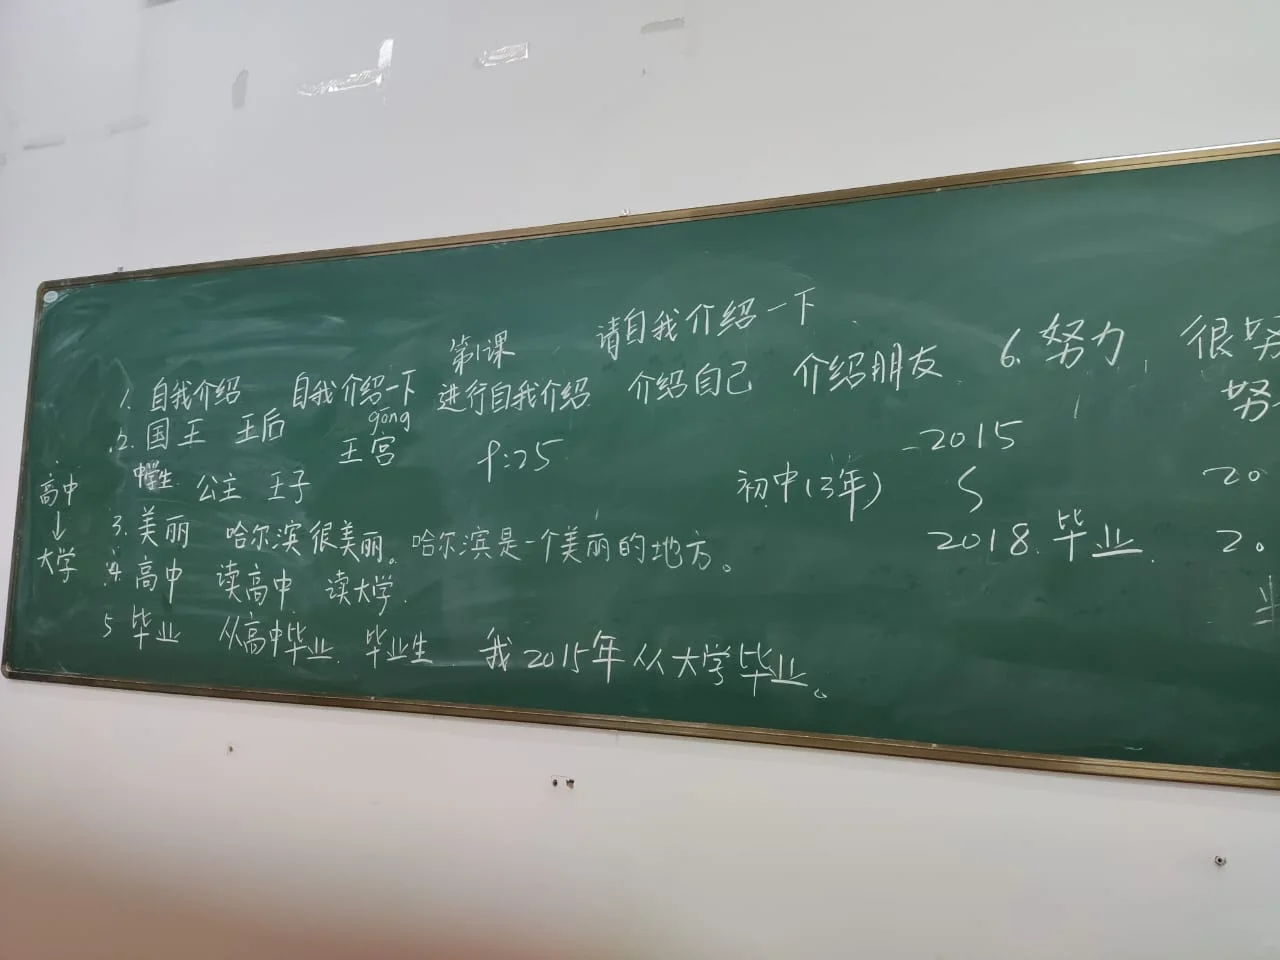 第1课 请自我介绍一下
1. 自我介绍 自我介绍一下 进行自我介绍 介绍自己 介绍朋友
gōng
2. 国王 王后 王宫 9:25
中学生 公主 王子
3. 美丽 哈尔滨很美丽。哈尔滨是一个美丽的地方。
4. 高中 读高中 读大学.
5 毕业 从高中毕业. 毕业生 我2015年从大学毕业。
高中
↓
大学
初中(3年)
2015
2018. 毕业.
6. 努力 很努
努
20
20